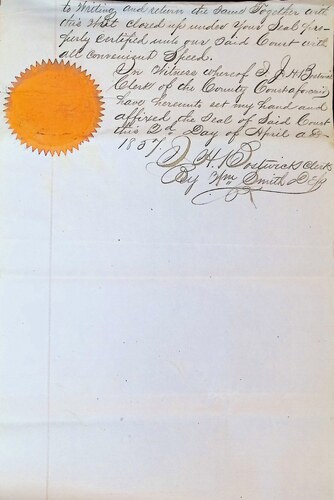 to Writing, and return the same Together with
this Writ closed up under Your Seal pro-
perly certified unto our Said Court with
all convenient Speed.
In Witness whereof I J. H. Bostwick
Clerk of the County Court aforesaid
have hereunto set my hand and
affixed the Seal of Said Court
this 2d Day of April A.D.
1857
J. H. Bostwick Clerk
By Wm Smith Dep